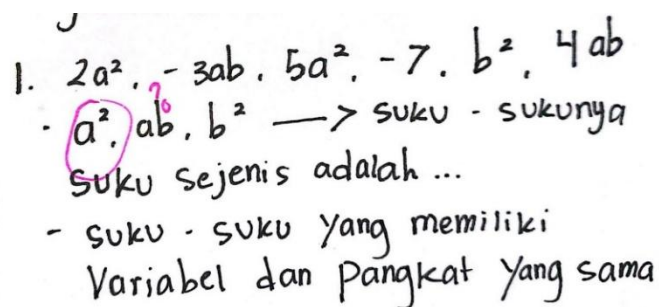 1. 2a², - 3ab, 5a², - 7, b², 4ab
- a², ab, b² —> suku - sukunya
suku sejenis adalah ...
- suku - suku yang memiliki
Variabel dan Pangkat yang sama